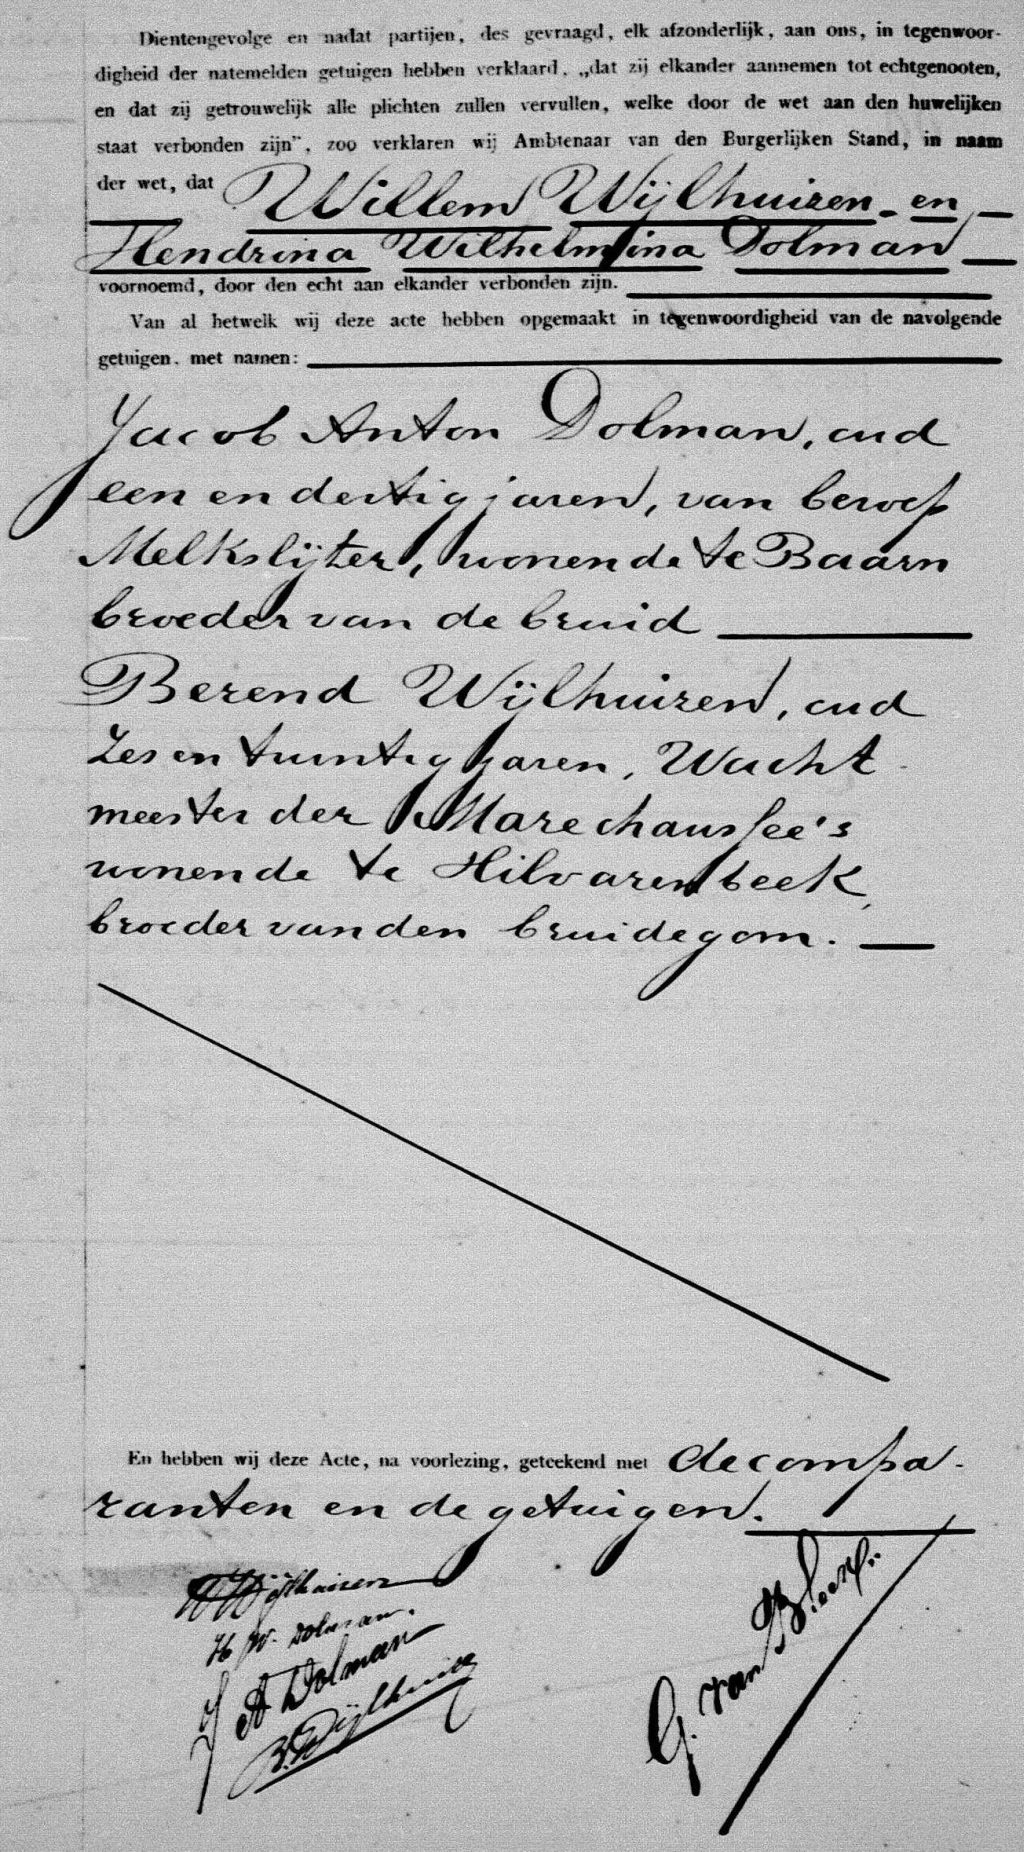 Dientengevolge en nadat partijen, des gevraagd, elk afzonderlijk, aan ons, in tegenwoor-
digheid der natemelden getuigen hebben verklaard, „dat zij elkander aannemen tot echtgenooten,
en dat zij getrouwelijk alle plichten zullen vervullen, welke door de wet aan den huwelijken
staat verbonden zijn", zoo verklaren wij Ambtenaar van den Burgerlijken Stand, in naam
der wet, dat Willem Wijlhuizen en
Hendrina Wilhelmina Dolman
voornoemd, door den echt aan elkander verbonden zijn.
Van al hetwelk wij deze acte hebben opgemaakt in tegenwoordigheid van de navolgende
getuigen, met namen:
Jacob Anton Dolman, oud
een en dertig jaren, van beroep
Melkslijter, wonende te Baarn
broeder van de bruid
Berend Wijlhuizen, oud
zes en twintig jaren, Wacht
meester der Marechaussee's
wonende te Hilvarenbeek,
broeder van den bruidegom.
En hebben wij deze Acte, na voorlezing, geteekend met de compa-
ranten en de getuigen.
W Wijlhuizen
H W. Dolman.
J A Dolman
B. Wijlhuizen
G. van